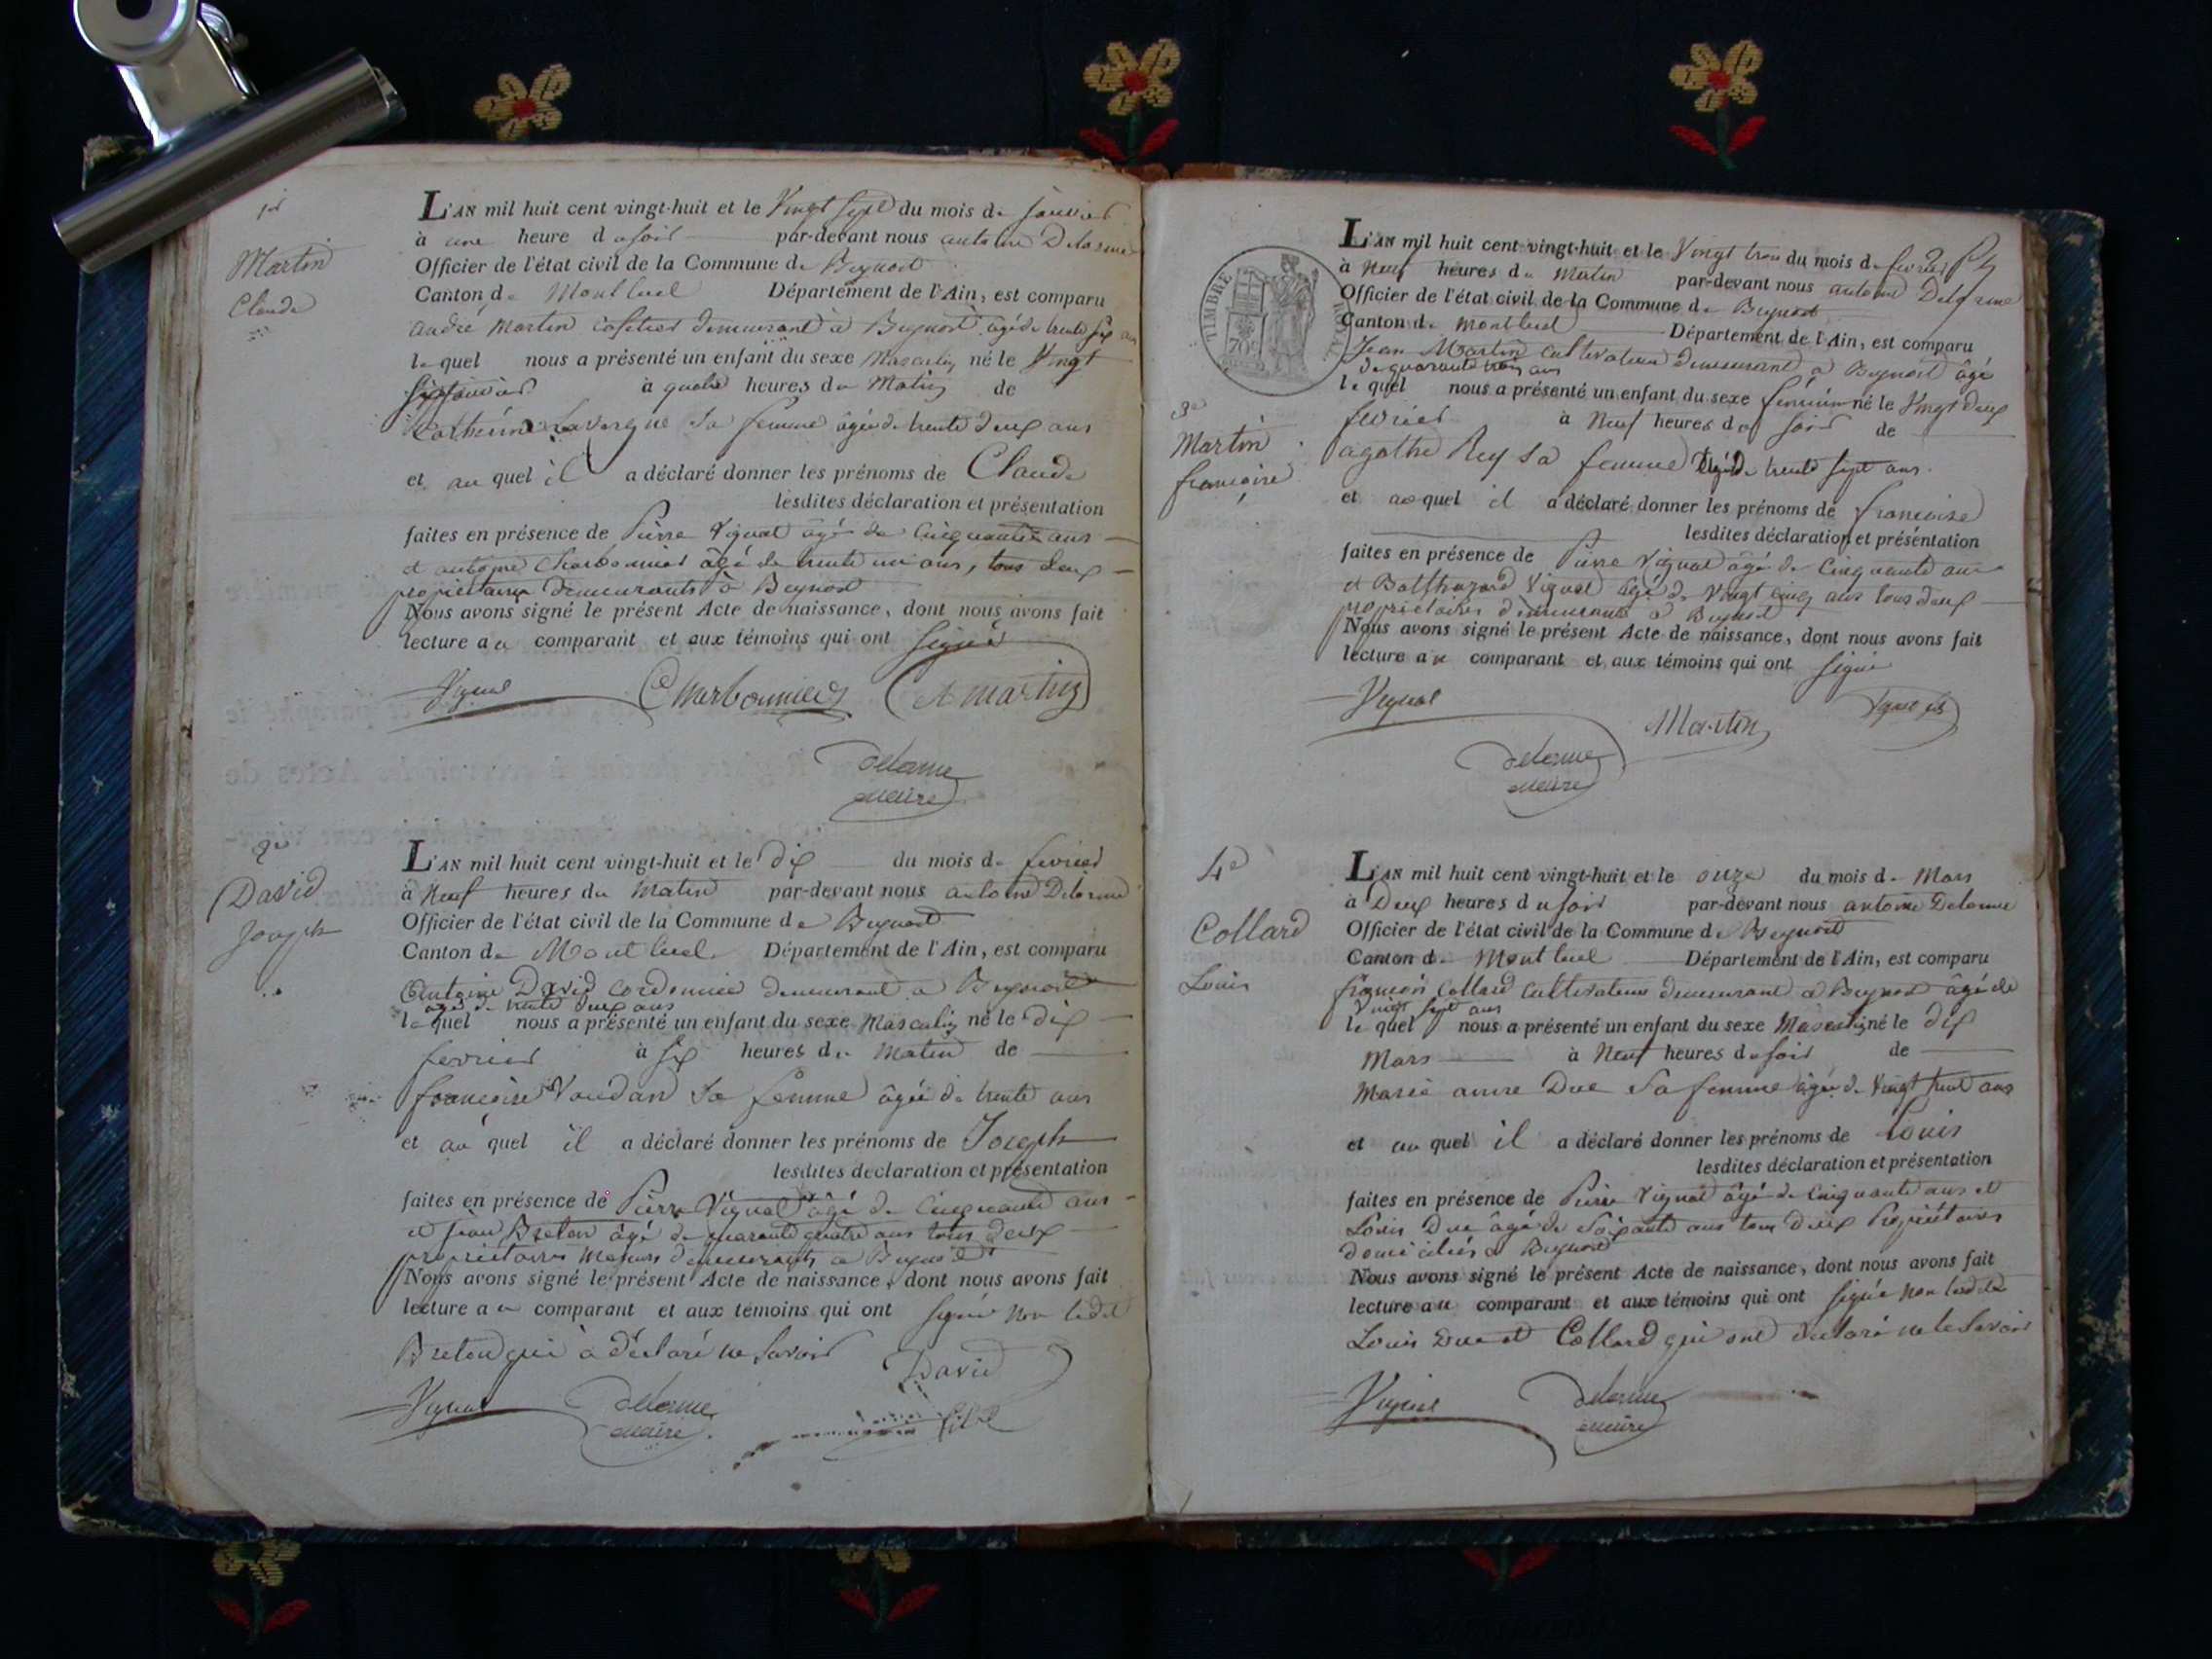 1er
Martin
Claude
L'AN mil huit cent vingt-huit et le Vingt Sept du mois de janvier
à une heure du soir par-devant nous antoine Delorme
Officier de l'état civil de la Commune de Beynost
Canton de Montluel Département de l'Ain, est comparu
andré Martin cafetier demeurant à Beynost âgé de trente six ans
lequel nous a présenté un enfant du sexe Masculin né le Vingt
Sept janvier à quatre heures du Matin de
Catherine Lavergne Sa femme âgée de trente deux ans
et au quel il a déclaré donner les prénoms de Claude
lesdites déclaration et présentation
faites en présence de Pierre Vignat âgé de Cinquante ans
et antoine Charbonnier âgé de trente un ans, tous deux
propriétaires demeurants à Beynost
Nous avons signé le présent Acte de naissance, dont nous avons fait
lecture au comparant et aux témoins qui ont Signé
Vignat Charbonnier A martin
Delorme
maire
2e
David
Joseph
L'AN mil huit cent vingt-huit et le dix du mois de fevrier
à Neuf heures du Matin par-devant nous antoine Delorme
Officier de l'état civil de la Commune de Beynost
Canton de Montluel Département de l'Ain, est comparu
Antoine David Cordonnier demeurant a Beynost
âgé de trente deux ans
lequel nous a présenté un enfant du sexe Masculin né le dix
fevrier à six heures du Matin de
françoise Vaudan Sa femme âgée de trente ans
et au quel il a déclaré donner les prénoms de Joseph
lesdites declaration et présentation
faites en présence de Pierre Vignat âgé de Cinquante ans
et jean Breton âgé de quarante quatre ans tous deux
propriétaires demeurants a Beynost
Nous avons signé le présent Acte de naissance, dont nous avons fait
lecture au comparant et aux témoins qui ont signé Non ledit
Breton qui à déclaré ne Savoir
David
Vignat Delorme
maire
TIMBRE ROYAL
70c
3e
Martin
françoise
L'AN mil huit cent vingt-huit et le Vingt trois du mois de fevrier
à Neuf heures du Matin par-devant nous antoine Delorme
Officier de l'état civil de la Commune de Beynost
Canton de Montluel Département de l'Ain, est comparu
Jean Martin Cultivateur demeurant a Beynost âgé
de quarante trois ans
lequel nous a présenté un enfant du sexe féminin né le Vingt deux
fevrier à Neuf heures du Soir de
agathe Rey Sa femme âgée de trente sept ans
et auquel il a déclaré donner les prénoms de françoise
lesdites déclaration et présentation
faites en présence de Pierre Vignat âgé de Cinquante ans
et Balthazard Vignat âgé de Vingt cinq ans tous deux
propriétaires demeurants à Beynost
Nous avons signé le présent Acte de naissance, dont nous avons fait
lecture au comparant et aux témoins qui ont signé
Vignat Martin Vignat fils
Delorme
maire
4e
Collard
Louis
L'AN mil huit cent vingt-huit et le onze du mois de Mars
à Deux heures du soir par-devant nous antoine Delorme
Officier de l'état civil de la Commune de Beynost
Canton de Montluel Département de l'Ain, est comparu
françois Collard Cultivateur demeurant a Beynost âgé de
Vingt Sept ans
lequel nous a présenté un enfant du sexe Masculin né le dix
Mars à Neuf heures du soir de
Marie anne Duc Sa femme âgée de Vingt huit ans
et au quel il a déclaré donner les prénoms de Louis
lesdites déclaration et présentation
faites en présence de Pierre Vignat âgé de Cinquante ans et
Louis Duc âgé de Soixante ans tous deux Propriétaires
domiciliés a Beynost
Nous avons signé le présent Acte de naissance, dont nous avons fait
lecture au comparant et aux témoins qui ont signé non ledit
Louis Duc et Collard qui ont declaré ne le Savoir
Vignat Delorme
maire